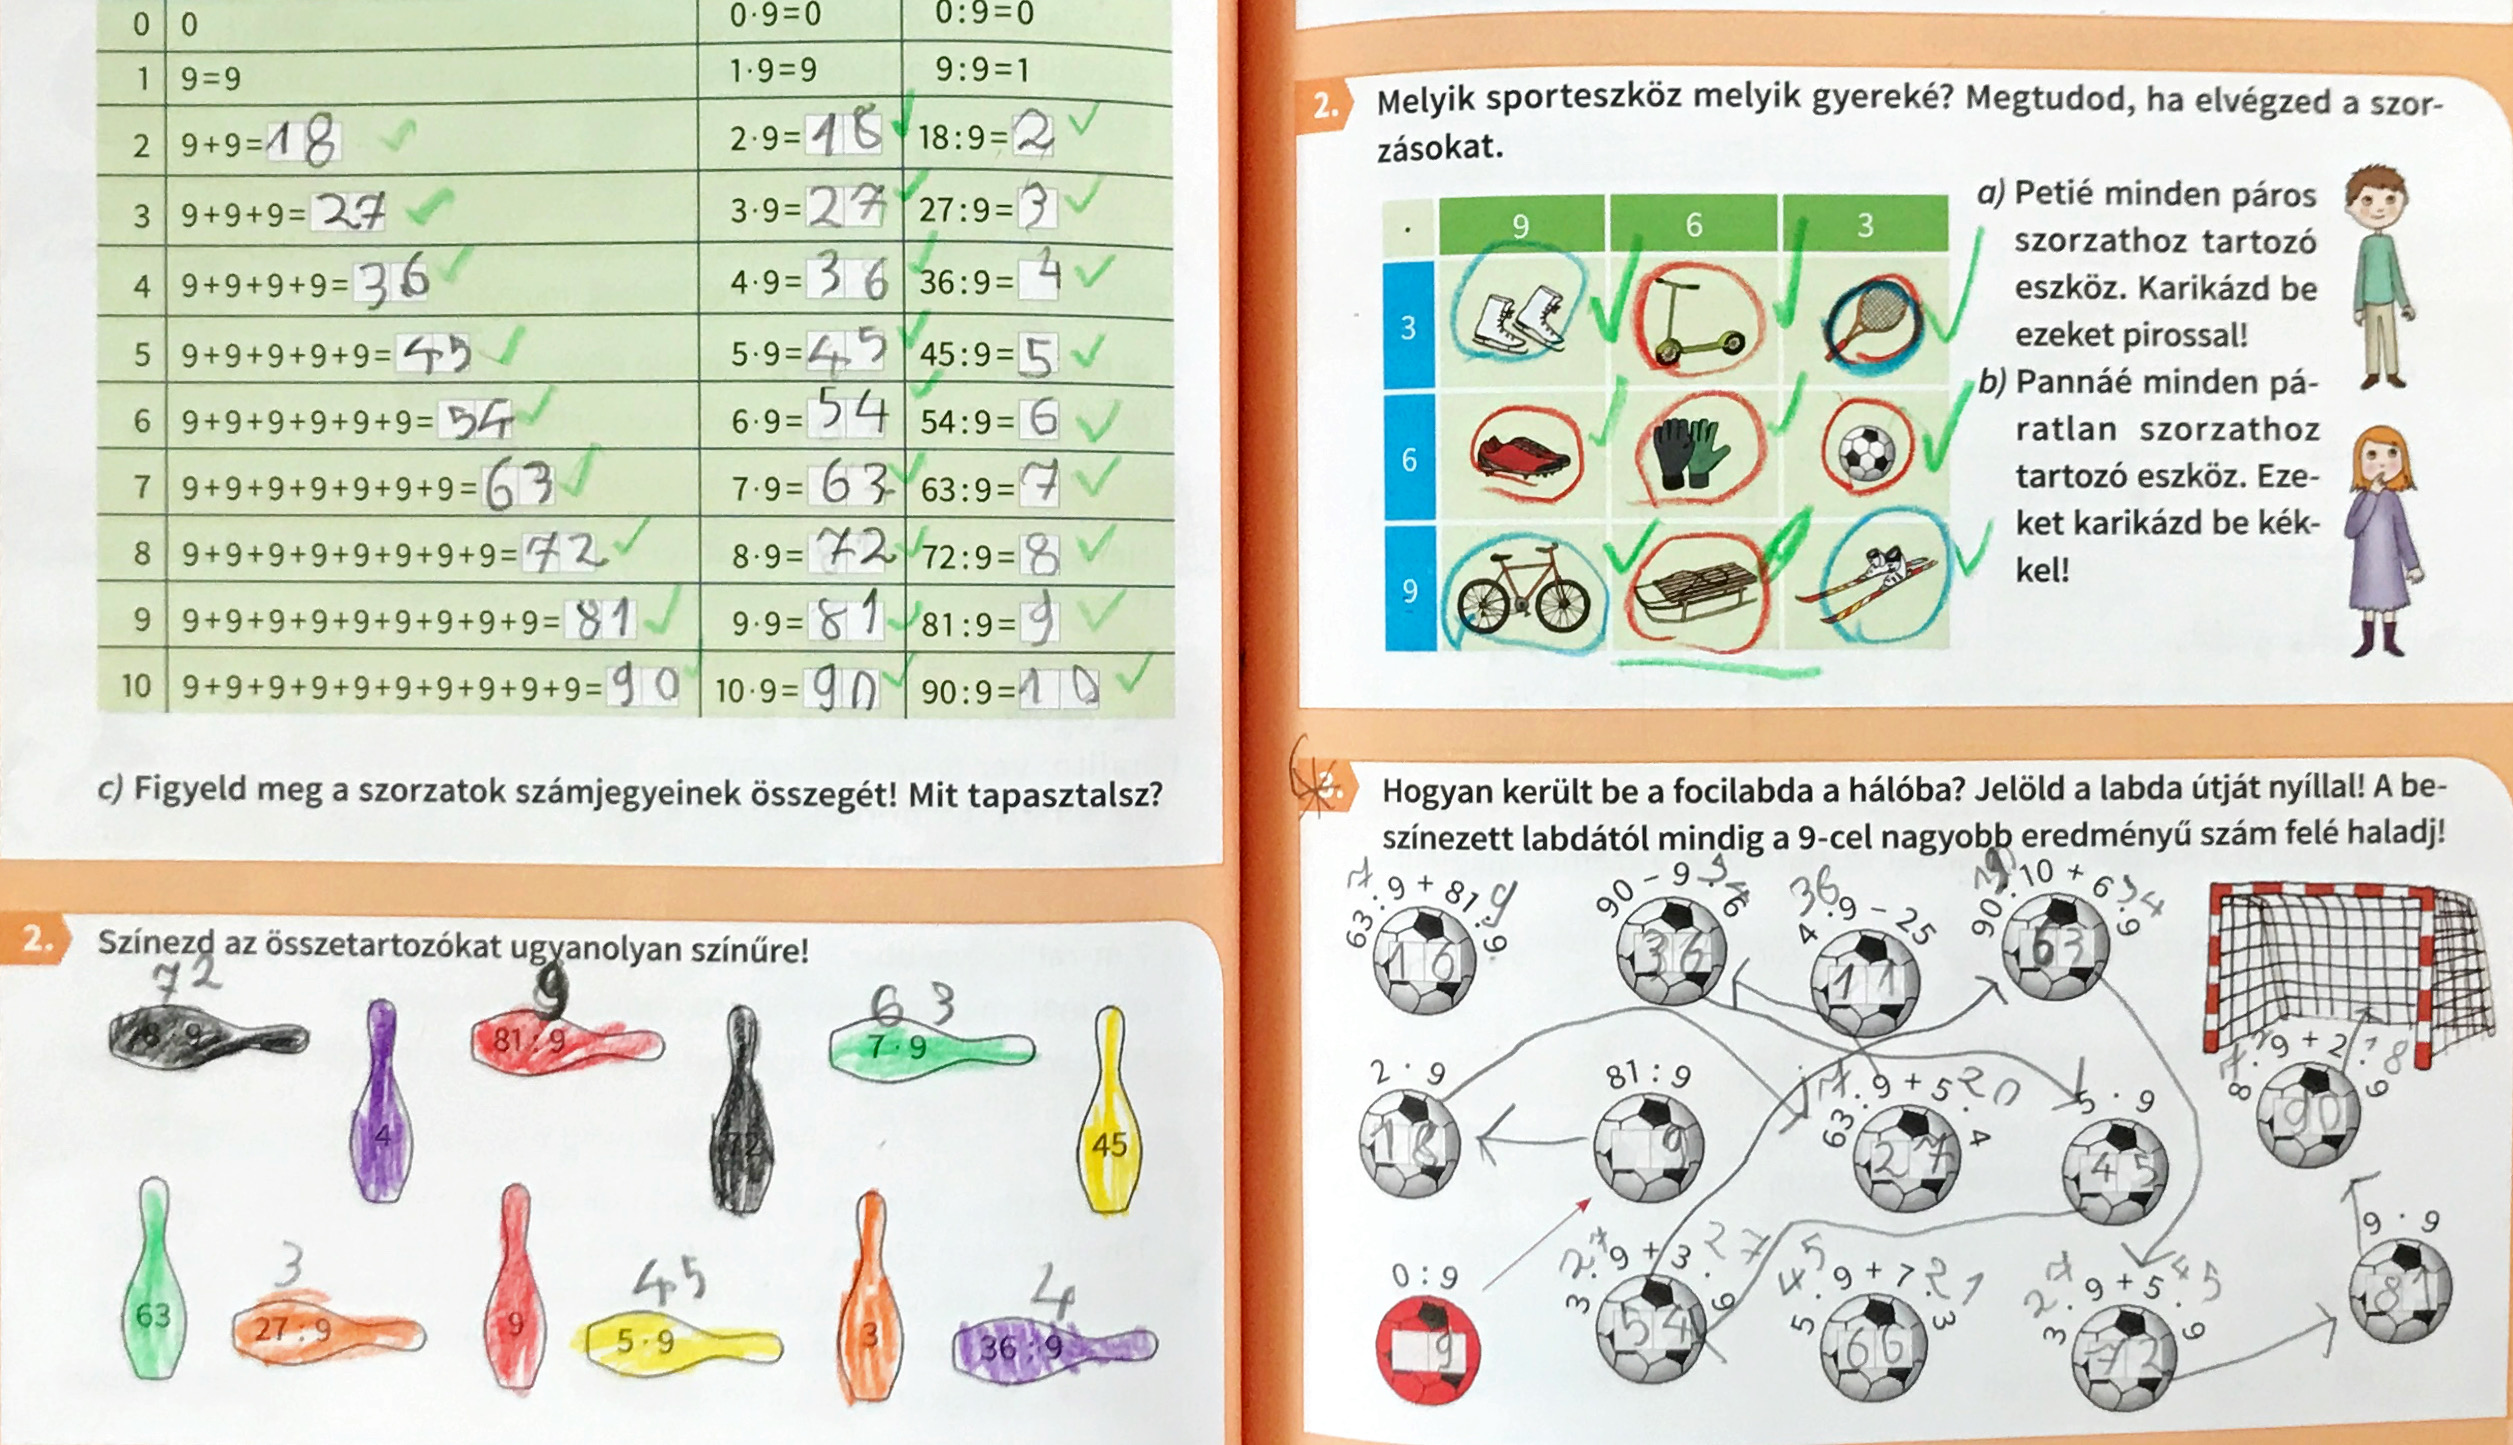 0 0 0·9=0 0:9=0
1 9=9 1·9=9 9:9=1
2 9+9=18 2·9=18 18:9=2
3 9+9+9=27 3·9=27 27:9=3
4 9+9+9+9=36 4·9=36 36:9=4
5 9+9+9+9+9=45 5·9=45 45:9=5
6 9+9+9+9+9+9=54 6·9=54 54:9=6
7 9+9+9+9+9+9+9=63 7·9=63 63:9=7
8 9+9+9+9+9+9+9+9=72 8·9=72 72:9=8
9 9+9+9+9+9+9+9+9+9=81 9·9=81 81:9=9
10 9+9+9+9+9+9+9+9+9+9=90 10·9=90 90:9=10
c) Figyeld meg a szorzatok számjegyeinek összegét! Mit tapasztalsz?
2. Színezd az összetartozókat ugyanolyan színűre!
72 9 63
8·9 81:9 7·9
4 72 45
3 45 4
63 27:9 9 5·9 3 36:9
2. Melyik sporteszköz melyik gyereké? Megtudod, ha elvégzed a szor-
zásokat.
· 9 6 3
3
6
9
a) Petié minden páros
szorzathoz tartozó
eszköz. Karikázd be
ezeket pirossal!
b) Pannáé minden pá-
ratlan szorzathoz
tartozó eszköz. Eze-
ket karikázd be kék-
kel!
3. Hogyan került be a focilabda a hálóba? Jelöld a labda útját nyíllal! A be-
színezett labdától mindig a 9-cel nagyobb eredményű szám felé haladj!
7 9 54 36 9 54
63:9+81:9 90-9·6 4·9-25 90:10+6·9
16 36 11 63
7 20 72 18
2·9 81:9 63:9+5·4 5·9 8·9+2·9
18 9 27 45 90
27 27 45 21 27 45
0:9 3·9+3·9 5·9+7·3 3·9+5·9 9·9
9 54 66 72 81